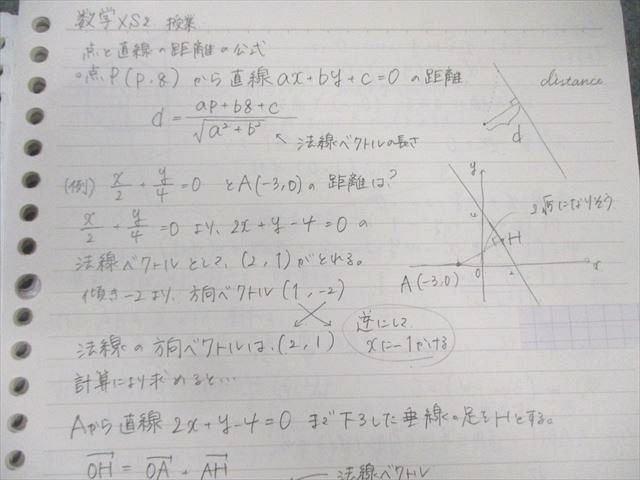 数学XS2 授業
点と直線の距離の公式
○点P(p,q)から直線ax+by+c=0の距離
distance
d = ap+bq+c / √a²+b²
d
↖法線ベクトルの長さ
(例) x/2 + y/4 = 0 とA(-3,0)の距離は?
x/2 + y/4 = 0 より、2x+y-4=0の
法線ベクトルとして、(2,1)がとれる。
傾き-2より、方向ベクトル(1,-2)
y
4
H
A(-3,0)
0
2
x
法線の方向ベクトルは、(2,1)
逆にして
xに-1かける
計算により求めると…
Aから直線2x+y-4=0まで下ろした垂線の足をHとする。
OH = OA + AH
法線ベクトル